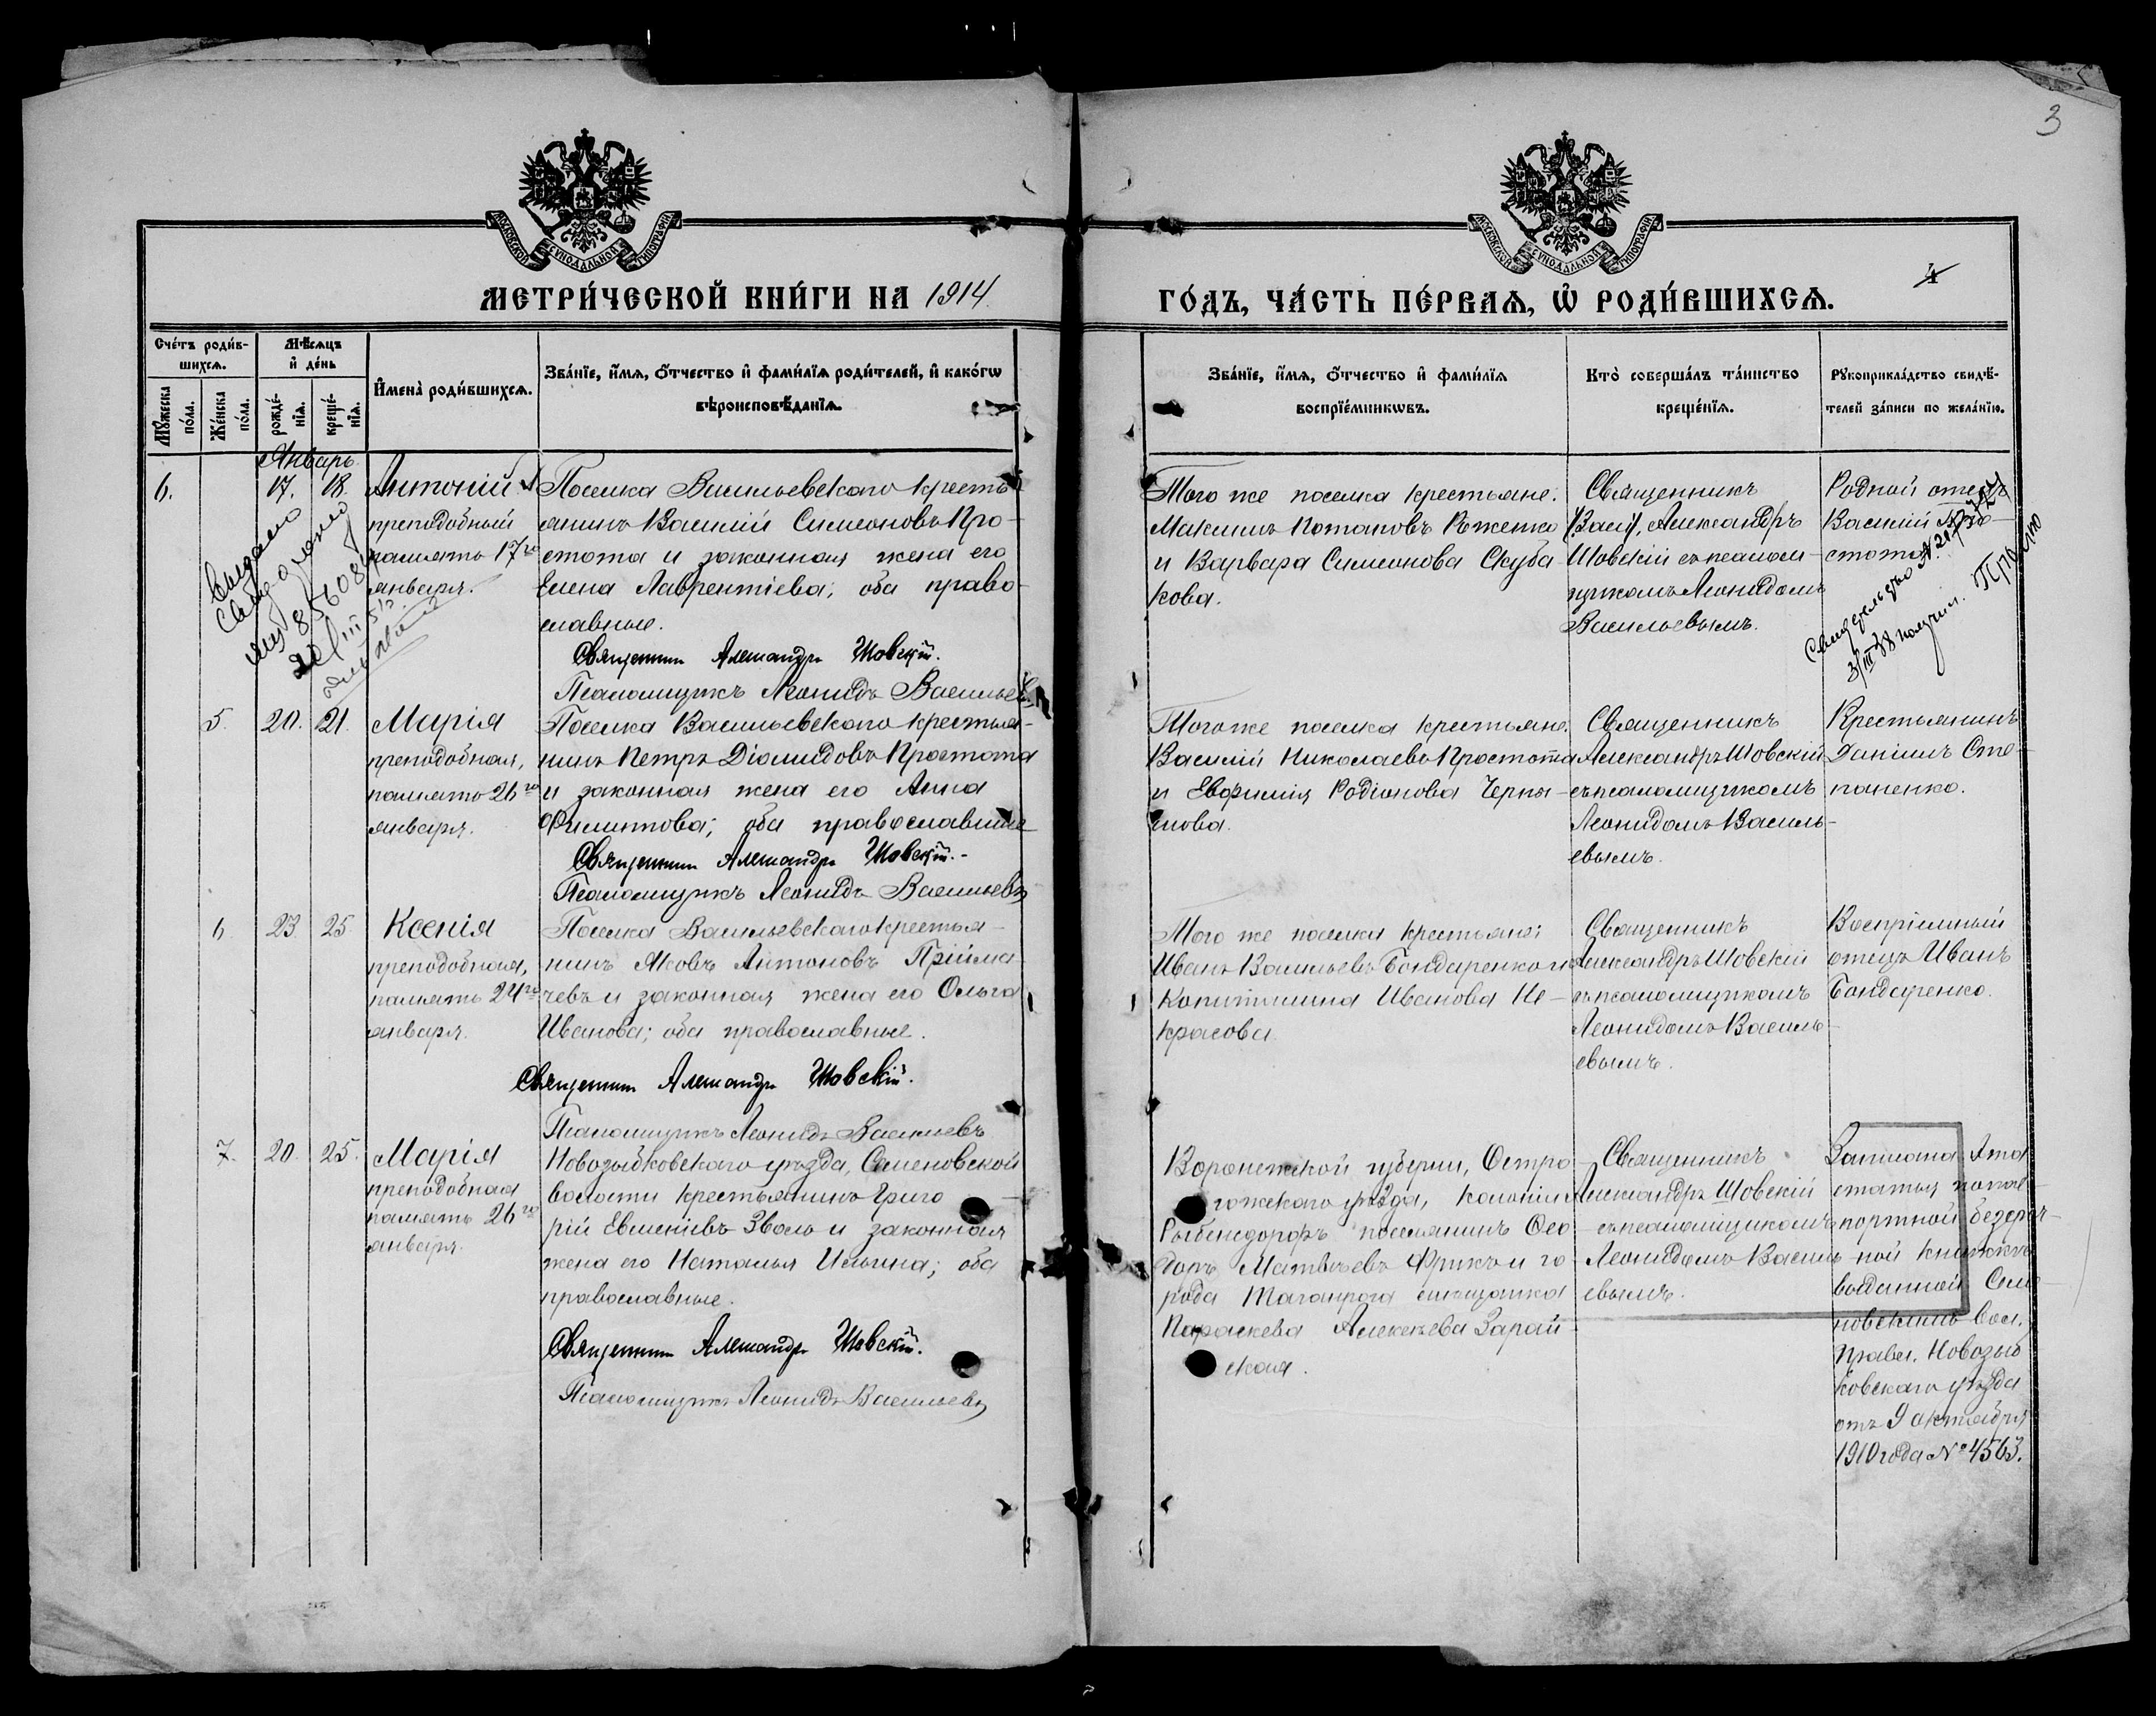 3
МОСКОВСКОЙ СѴНОДАЛЬНОЙ ТИПОГРАФІИ
МОСКОВСКОЙ СѴНОДАЛЬНОЙ ТИПОГРАФІИ
МЕТРИ́ЧЕСКОЙ КНИ́ГИ НА 1914.
ГО́ДЪ, ЧА́СТЬ ПЕ́РВАЯ, Ѿ РОДИ́ВШИХСЯ.
4
Сче́тъ роди́в-
шихся.
Мѣ́сяцъ
и҆ де́нь
Мꙋ́жеска
по́ла.
Же́нска
по́ла.
рожде́-
нїя.
креще́-
нїя.
И҆мена̀ роди́вшихся.
Зва́нїе, и҆́мя, ѻ҆́тчество и҆ фами́лїя роди́телей, и҆ како́гѡ
вѣроисповѣ́данїя.
Зва́нїе, и҆́мя, ѻ҆́тчество и҆ фами́лїя
воспрїе́мникѡвъ.
Кто̀ соверша́лъ та́инство
креще́нїя.
Рꙋкоприкла́дство свидѣ́-
телей за́писи по жела́нїю.
Январь.
6.
17.
18.
Антоній
преподобный
память 17го
января.
Поселка Васильевскаго кресть-
янинъ Василій Симеоновъ Про-
стота и законная жена его
Елена Лаврентіева; оба право-
славные.
Священникъ Александръ Шовскій.
Псаломщикъ Леонидъ Васильевъ
Того же поселка крестьяне:
Максимъ Потаповъ
и Варвара Симеонова Скуба-
кова.
Священникъ
Александръ
Шовскій съ псалом-
щикомъ Леонидомъ
Васильевымъ.
Родной отецъ
Василій Про-
стота.
Выдано
Свидѣтельство №
получил.
5.
20.
21.
Марія
преподобная,
память 26го
января.
Поселка Васильевскаго крестья-
нинъ Петръ Діомидовъ Простота
и законная жена его Анна
Филиппова; оба православные
Священникъ Александръ Шовскій.
Псаломщикъ Леонидъ Васильевъ
Того же поселка крестьяне:
Василій Николаевъ Простота
и Евфимія Родіонова Черны-
шова.
Священникъ
Александръ Шовскій
съ псаломщикомъ
Леонидомъ Василь-
евымъ.
Крестьянинъ
Даніилъ Сте-
паненко.
6
23.
25.
Ксенія
преподобная,
память 24го
января.
Поселка Васильевскаго крестья-
нинъ Яковъ Антоновъ Пріима-
чевъ и законная жена его Ольга
Иванова; оба православные.
Священникъ Александръ Шовскій.
Псаломщикъ Леонидъ Васильевъ
Того же поселка крестьяне:
Иванъ Васильевъ Бондаренко и
Капитолина Иванова Не-
красова.
Священникъ
Александръ Шовскій
съ псаломщикомъ
Леонидомъ Василь-
евымъ.
Воспріемный
отецъ Иванъ
Бондаренко.
7.
20.
25.
Марія
преподобная
память 26го
января.
Новозыбковскаго уѣзда, Семеновской
волости крестьянинъ Григо-
рій Евменіевъ Зволь и законная
жена его Наталья Ильина; оба
православные.
Священникъ Александръ Шовскій.
Псаломщикъ Леонидъ Васильевъ
Воронежской губерніи, Остро-
гожскаго уѣзда, колоніи
Рыбенсдорфъ поселянинъ Ѳео-
доръ Матвѣевъ Фрикъ и го-
рода Таганрога мѣщанка
Параскева Алексѣева Зарай-
ская.
Священникъ
Александръ Шовскій
съ псаломщикомъ
Леонидомъ Василь-
евымъ.
Записана эта
статья по пас-
портной безсроч-
ной книжкѣ
выданной Семе-
новскимъ Вол.
Правл. Новозыб-
ковскаго уѣзда
отъ 9 октября
1910 года № 4563.